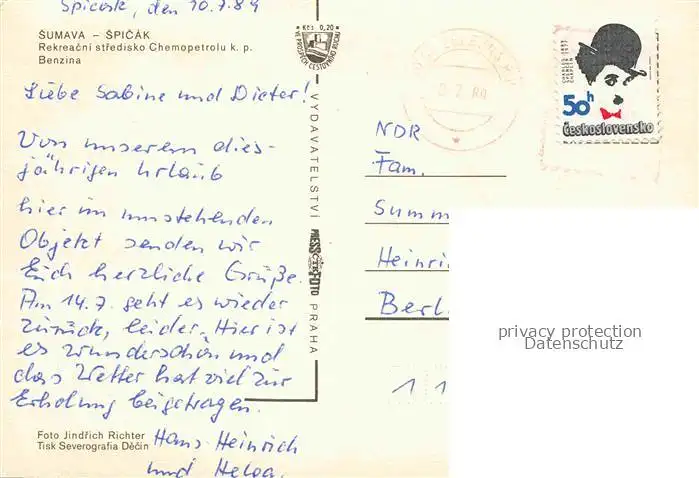 Spicak, den 10.7.89
ŠUMAVA – ŠPIČÁK
Rekreační středisko Chemopetrolu k. p.
Benzina
Liebe Sabine und Dieter!
Von unserem dies-
jährigen Urlaub
hier im umstehenden
Objekt senden wir
Euch herzliche Grüße.
Am 14.7. geht es wieder
zurück, leider. Hier ist
es wunderschön und
das Wetter hat viel zur
Erholung beigetragen.
Hans-Heinrich
und Helga.
Foto Jindřich Richter
Tisk Severografia Děčín
Kčs 0,20
VE PROSPĚCH CESTOVNÍHO RUCHU
VYDAVATELSTVÍ
PRESSFOTO
ČTK
PRAHA
50h
Československo
NDR
Fam.
Summ
Heinri
Berl
1 1
privacy protection
Datenschutz